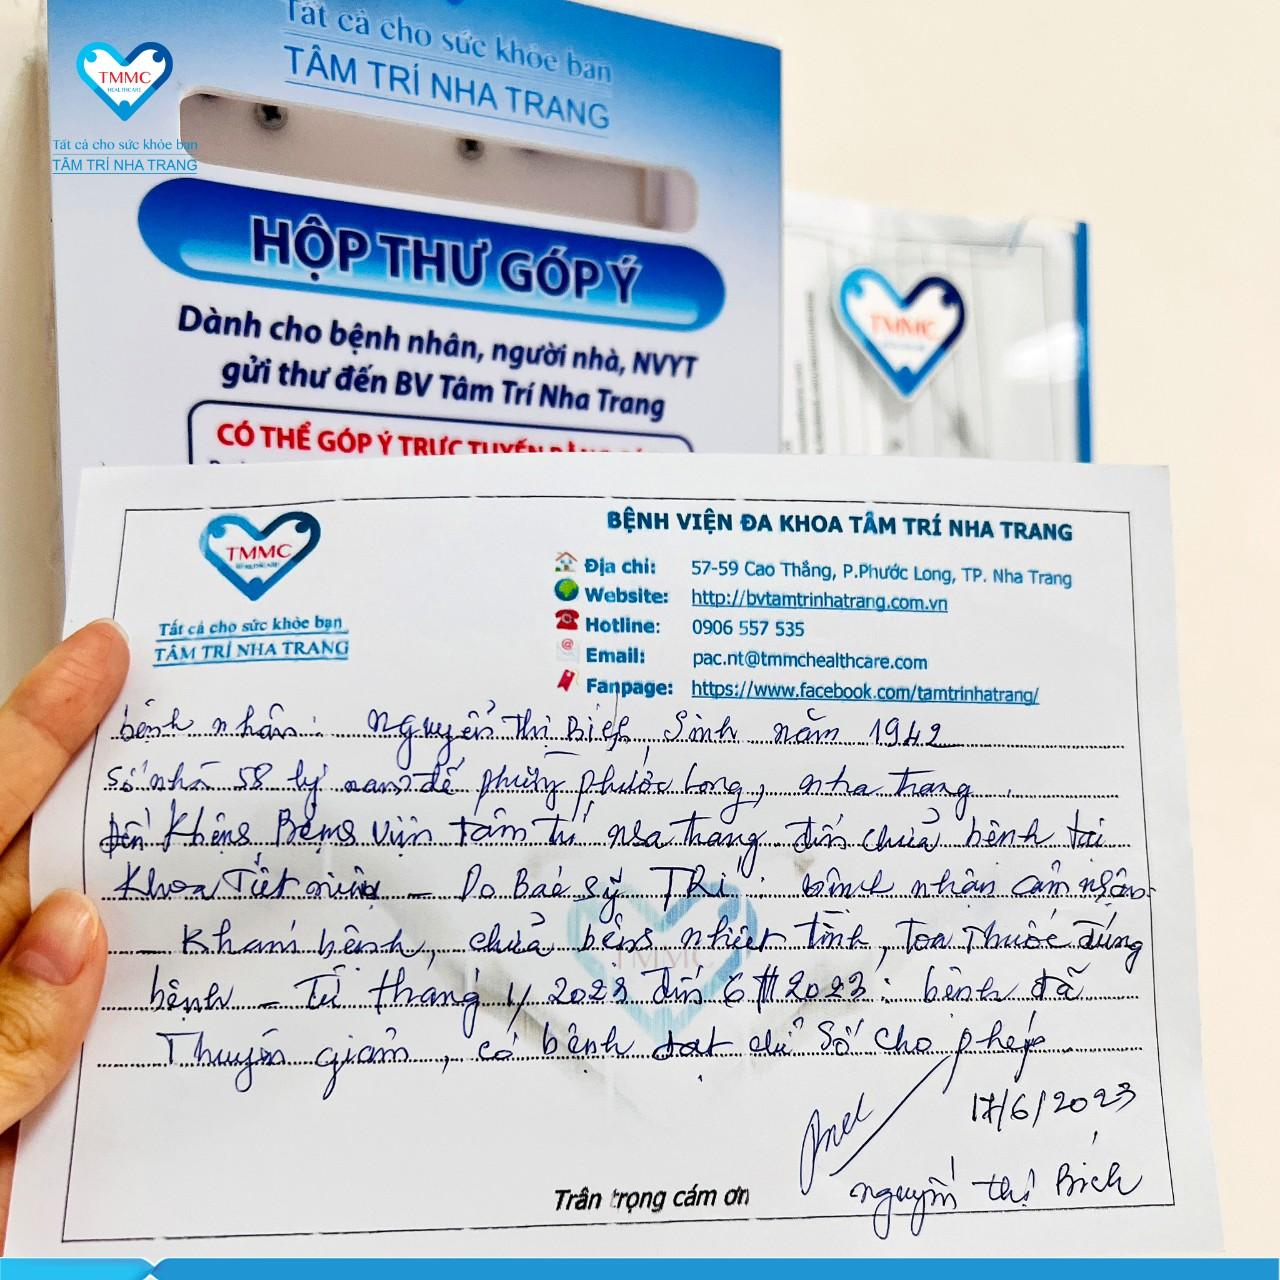 TMMC
HEALTHCARE
Tất cả cho sức khỏe bạn
TÂM TRÍ NHA TRANG
Tất cả cho sức khỏe bạn
TÂM TRÍ NHA TRANG
HỘP THƯ GÓP Ý
Dành cho bệnh nhân, người nhà, NVYT
gửi thư đến BV Tâm Trí Nha Trang
CÓ THỂ GÓP Ý TRỰC TUYẾN BẰNG
TMMC
TMMC
HEALTHCARE
Tất cả cho sức khỏe bạn
TÂM TRÍ NHA TRANG
BỆNH VIỆN ĐA KHOA TÂM TRÍ NHA TRANG
Địa chỉ: 57-59 Cao Thắng, P.Phước Long, TP. Nha Trang
Website: http://bvtamtrinhatrang.com.vn
Hotline: 0906 557 535
Email: pac.nt@tmmchealthcare.com
Fanpage: https://www.facebook.com/tamtrinhatrang/
bệnh nhân: Nguyễn Thị Bích, Sinh năm 1942
Số nhà 58 lý nam đế phường phước Long, nha trang
đến Bệnh Viện Tâm trí nha trang đến chữa bệnh tại
Khoa Tiết niệu – Do Bác sỹ TRí: bệnh nhận cảm nhận
– Khám bệnh, chữa bệnh nhiệt tình, Toa Thuốc đúng
bệnh – Từ tháng 1/2023 đến 6 2023: bệnh đã
Thuyên giảm, có bệnh đạt chỉ số cho phép
17/6/2023
nguyễn thị Bích
Trân trọng cám ơn
TMMC